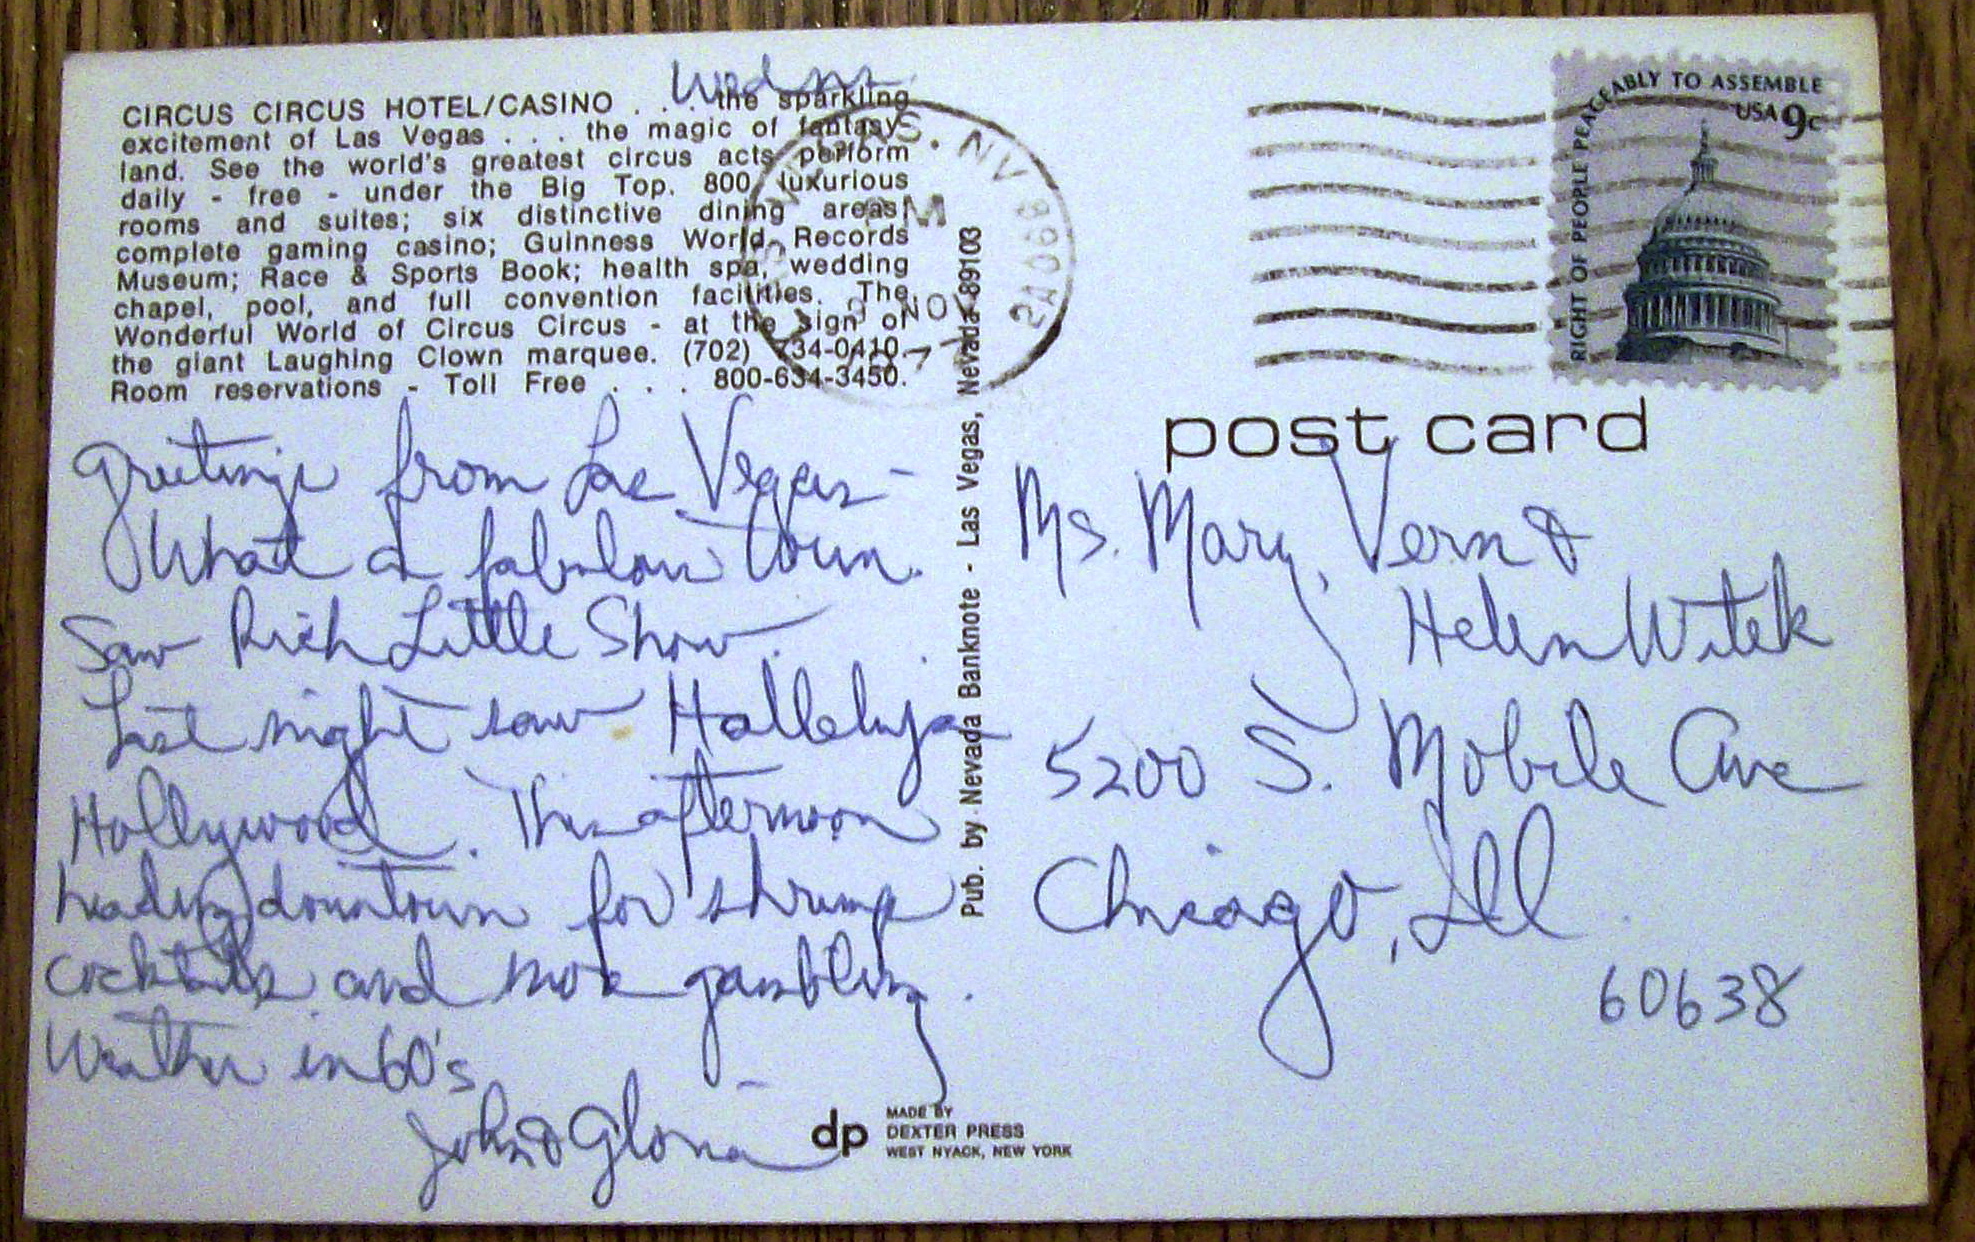 Wedn
CIRCUS CIRCUS HOTEL/CASINO . . . the sparkling
excitement of Las Vegas . . . the magic of fantasy
land. See the world's greatest circus acts perform
daily - free - under the Big Top. 800 luxurious
rooms and suites; six distinctive dining areas;
complete gaming casino; Guinness World Records
Museum; Race & Sports Book; health spa, wedding
chapel, pool, and full convention facilities. The
Wonderful World of Circus Circus - at the sign of
the giant Laughing Clown marquee. (702) 734-0410.
Room reservations - Toll Free . . . 800-634-3450.
Greetings from Las Vegas -
What a fabulous town.
Saw Rich Little Show.
Last night saw Halleluja
Hollywood. This afternoon
heading downtown for shrimp
cocktails and more gambling.
Weather in 60's
John & Gloria
dp
MADE BY
DEXTER PRESS
WEST NYACK, NEW YORK
Pub. by Nevada Banknote - Las Vegas, Nevada 89103
NV
NOV
RIGHT OF PEOPLE PEACEABLY TO ASSEMBLE
USA 9c
post card
Ms. Mary, Vern &
Helen Witek
5200 S. Mobile Ave
Chicago, Ill
60638